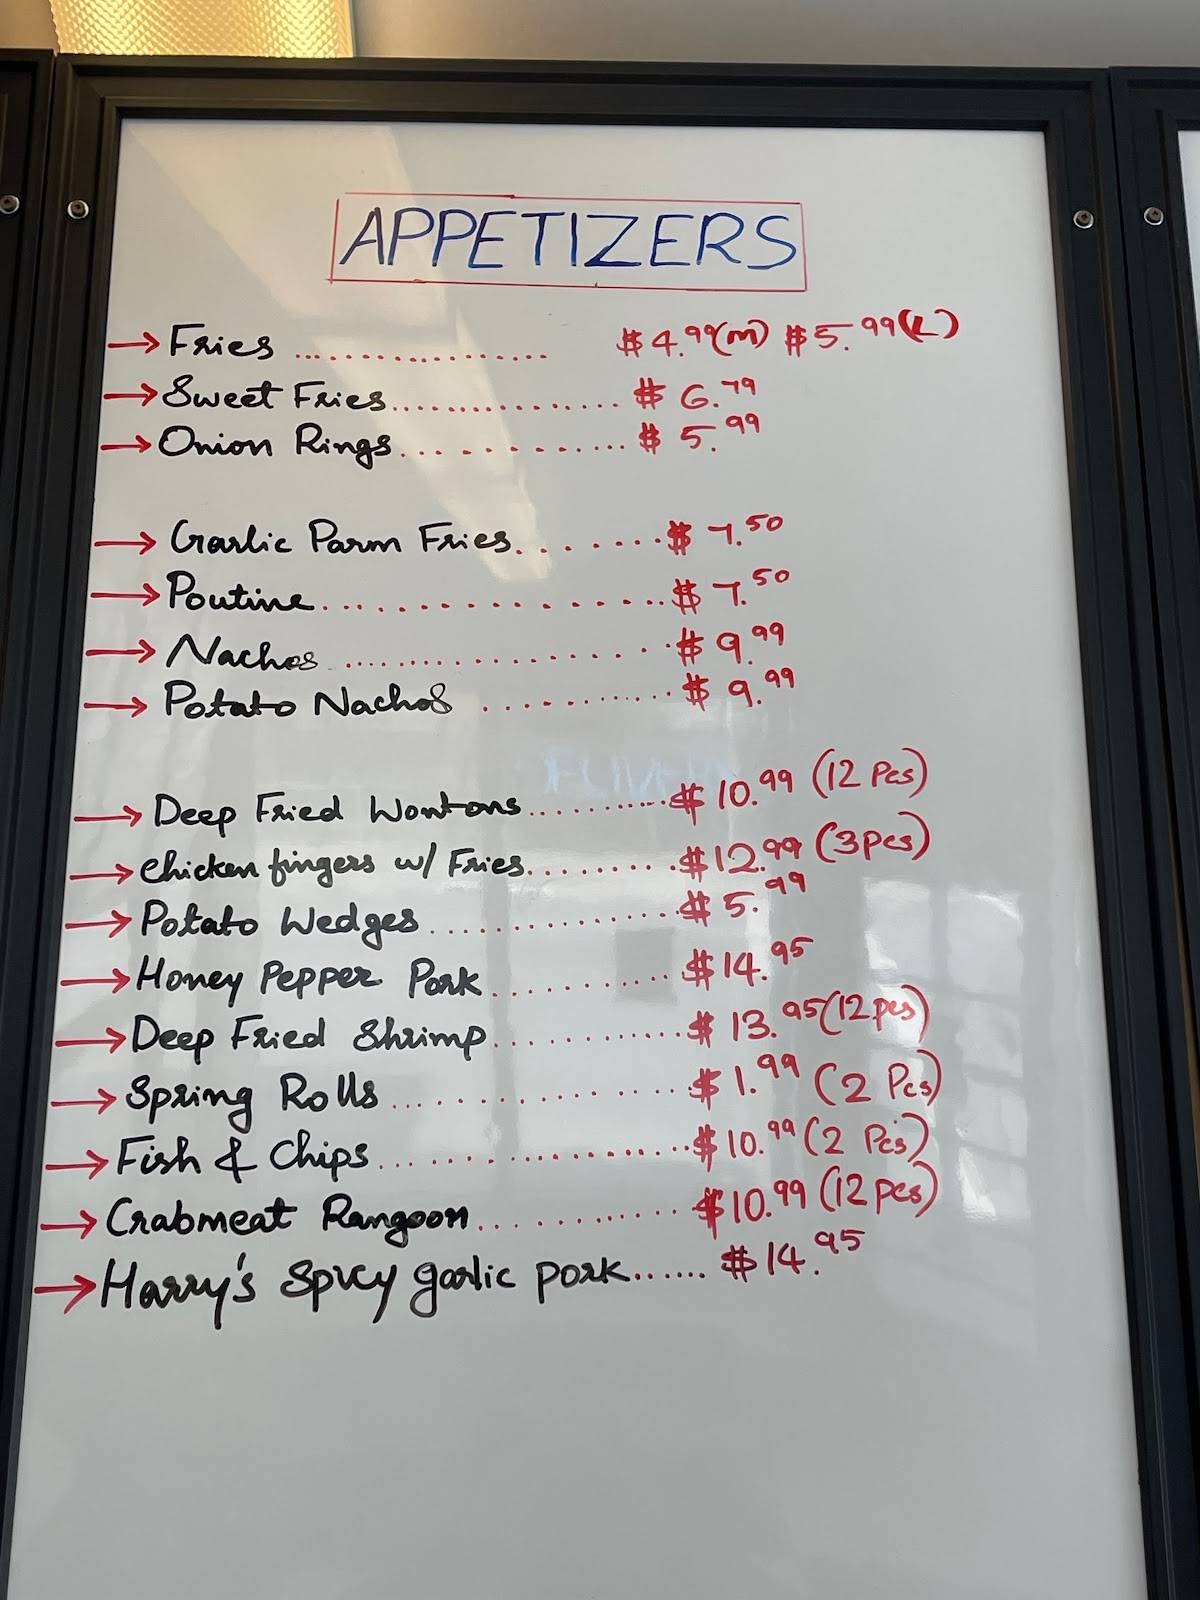 APPETIZERS
→ Fries ................ $4.99(M) $5.99(L)
→ Sweet Fries................ $6.79
→ Onion Rings............... $5.99
→ Garlic Parm Fries......... $7.50
→ Poutine.................... $7.50
→ Nachos.................... $9.99
→ Potato Nachos ............ $9.99
→ Deep Fried Wontons............ $10.99 (12 Pcs)
→ chicken fingers w/ Fries.......... $12.99 (3pcs)
→ Potato Wedges................ $5.99
→ Honey Pepper Pork............ $14.95
→ Deep Fried Shrimp............. $13.95(12pcs)
→ Spring Rolls.................. $1.99 (2 Pcs)
→ Fish & Chips................... $10.99(2 Pcs)
→ Crabmeat Rangoon............. $10.99 (12pcs)
→ Harry's Spicy garlic pork....... $14.95